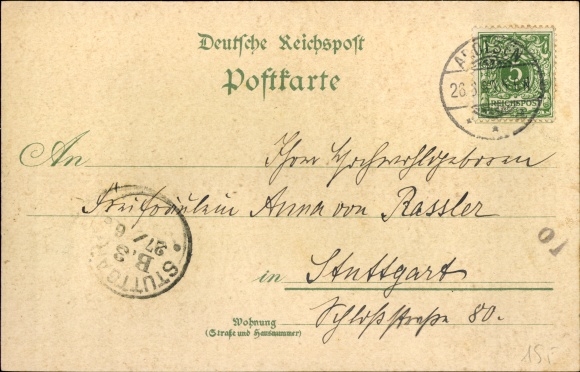 Deutsche Reichspost
Postkarte
AROLSEN
26.6
REICHSPOST
5
An Ihre Hochwohlgeboren
Freifräulein Anna von Rassler
in Stuttgart
Schloßstraße 80.
STUTTGART
B.2
27/6
10
Wohnung
(Straße und Hausnummer)
15,-